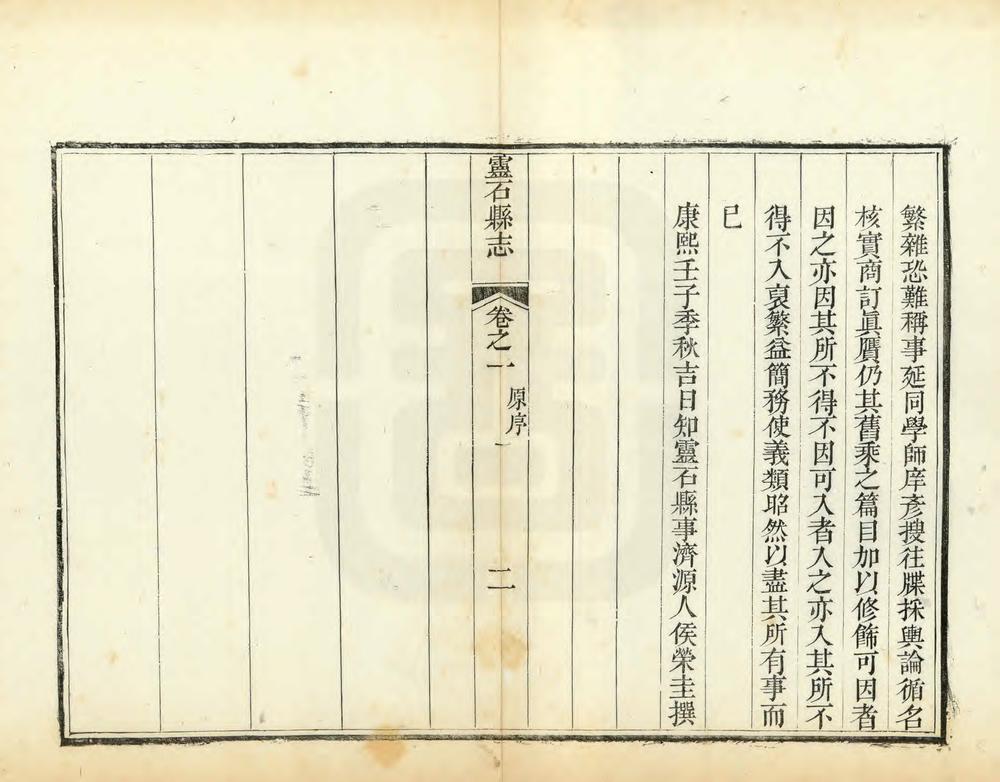 繁雜恐難稱事延同學師庠彥搜往牒採輿論循名
核實商訂眞贗仍其舊乘之篇目加以修飾可因者
因之亦因其所不得不因可入者入之亦入其所不
得不入裒繁益簡務使義類昭然以盡其所有事而
已
康熙壬子季秋吉日知靈石縣事濟源人侯榮圭撰
靈石縣志
卷之一
原序
二